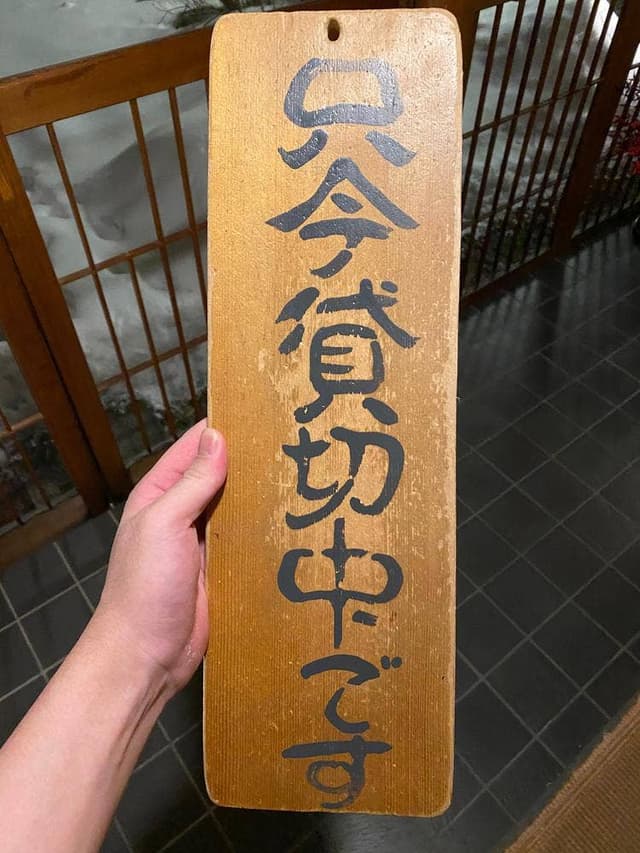 只今貸切中です